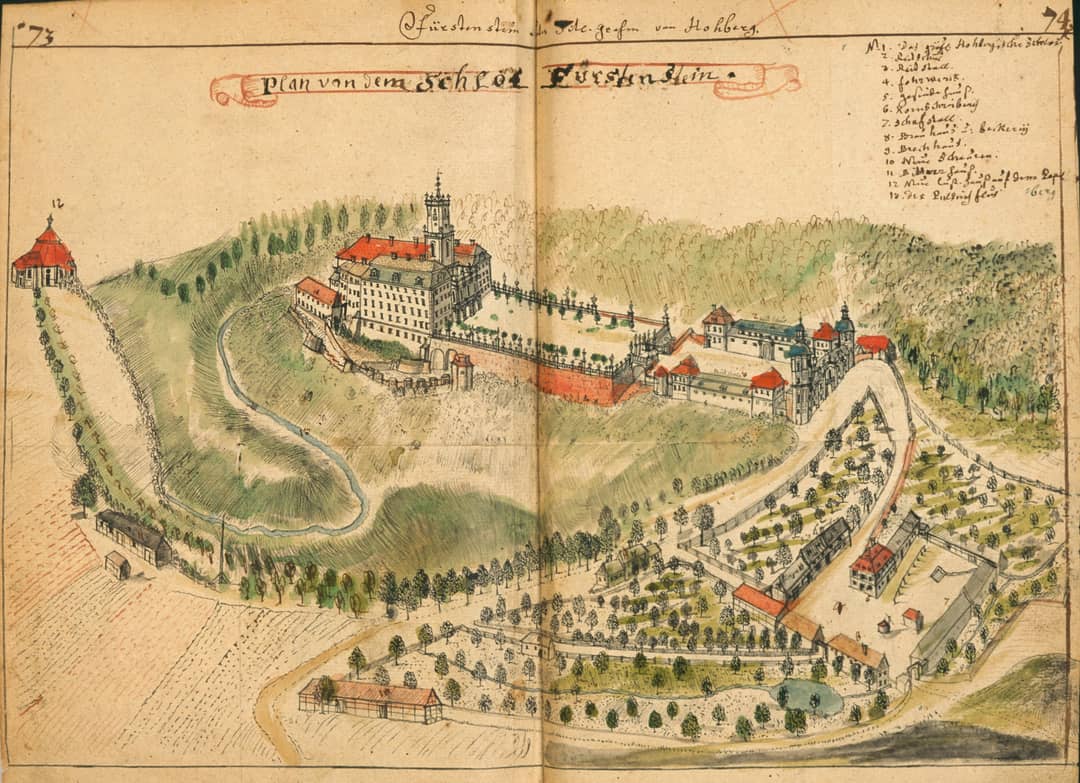 73
Fürstenstein des Tit. grafen von Hohberg.
74
Plan von dem Schlos Fürstenstein.
N. 1. Das gräfl. Hohbergische Schlos
2. Reidschul
3. Reidstall.
4. forwerck.
5. gesindehauß.
6. Kornschreiberey
7. Schafstall.
8. Brauhaus u: Beckerey
9. Brechhauß.
10 Neue Scheuren.
11
12 Neue lust hauß auf dem Papel
berg
13. der fluß
12